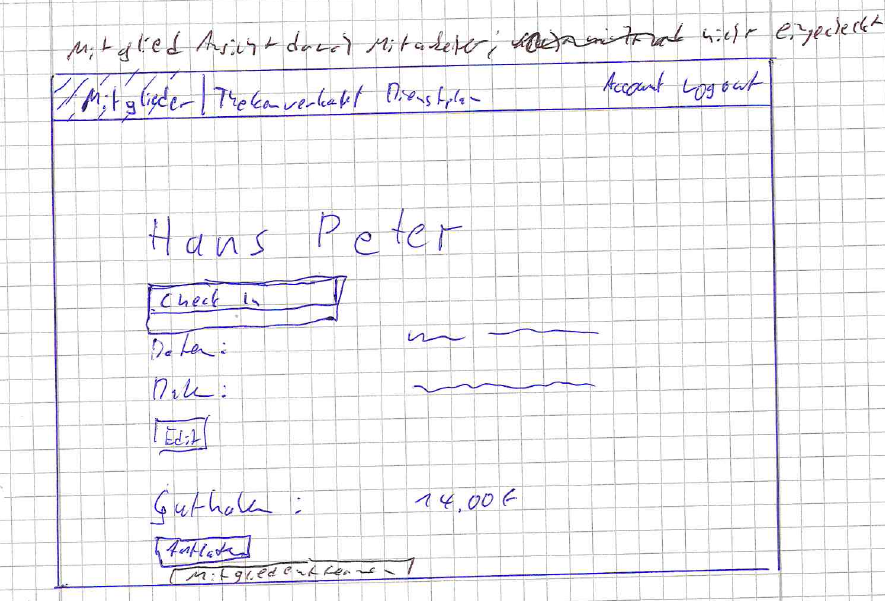 Mitglied Ansicht durch Mitarbeiter, nicht eingecheckt
Mitglieder Thekenverkauf Dienstplan Account Logout
Hans Peter
Check In
Daten:
Edit
Guthaben: 14,00€
Aufladen